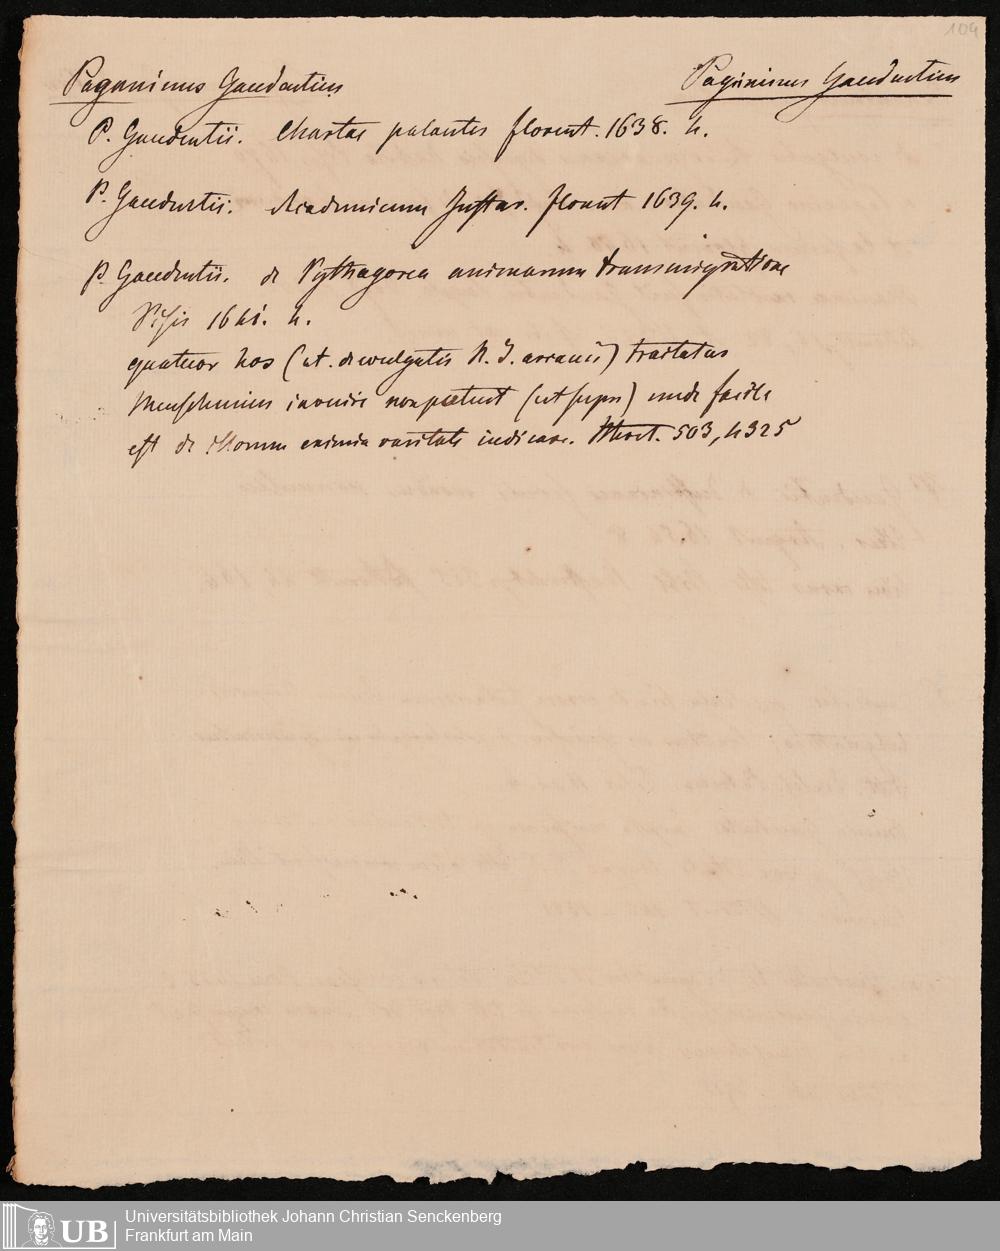 104
Paganinus Gaudentius Paganinus Gaudentius
P. Gaudentii. Chartae palantes florent. 1638. 4.
P. Gaudentii. Academicum Instar. florent 1639. 4.
P. Gaudentii. de Pythagorea animarum transmigratione
Pisis 1641. 4.
quatuor hos (ut. de evulgatis R. I. arcanis) tractatus
Menschenius invenire non potuit (ut supra) unde facile
est de illorum eximia raritate indicare. 503, 4325
UB Universitätsbibliothek Johann Christian Senckenberg
Frankfurt am Main